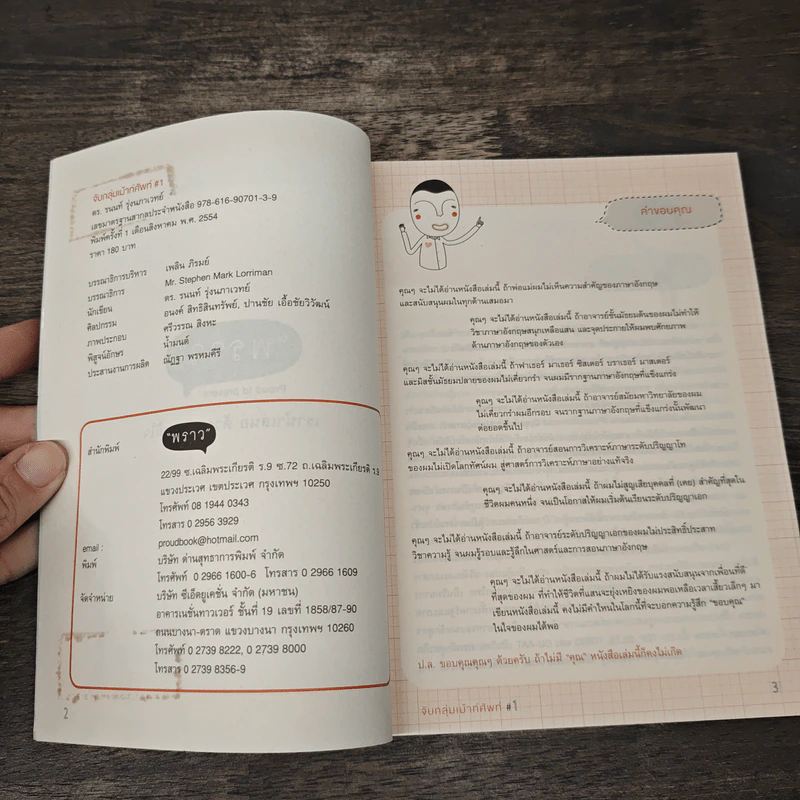 จับกลุ่มเม้าท์ศัพท์ #1
ดร. รนนท์ รุ่งนภาเวทย์
เลขมาตรฐานสากลประจำหนังสือ 978-616-90701-3-9
พิมพ์ครั้งที่ 1 เดือนสิงหาคม พ.ศ. 2554
ราคา 180 บาท
บรรณาธิการบริหาร เพลิน ภิรมย์
บรรณาธิการ Mr. Stephen Mark Lorriman
นักเขียน ดร. รนนท์ รุ่งนภาเวทย์
ศิลปกรรม อนงค์ สิทธิสินทรัพย์, ปานชัย เอื้อชัยวิวัฒน์
ภาพประกอบ ศรีวรรณ สิงทะ
พิสูจน์อักษร น้ำมนต์
ประสานงานการผลิต ณัฏฐา พรหมศีรี
สำนักพิมพ์ "พราว"
22/99 ซ.เฉลิมพระเกียรติ ร.9 ซ.72 ถ.เฉลิมพระเกียรติ ร.9
แขวงประเวศ เขตประเวศ กรุงเทพฯ 10250
โทรศัพท์ 08 1944 0343
โทรสาร 0 2956 3929
email : proudbook@hotmail.com
พิมพ์ บริษัท ด่านสุทธาการพิมพ์ จำกัด
โทรศัพท์ 0 2966 1600-6 โทรสาร 0 2966 1609
จัดจำหน่าย บริษัท ซีเอ็ดยูเคชั่น จำกัด (มหาชน)
อาคารเนชั่นทาวเวอร์ ชั้นที่ 19 เลขที่ 1858/87-90
ถนนบางนา-ตราด แขวงบางนา กรุงเทพฯ 10260
โทรศัพท์ 0 2739 8222, 0 2739 8000
โทรสาร 0 2739 8356-9
2
คำขอบคุณ
คุณๆ จะไม่ได้อ่านหนังสือเล่มนี้ ถ้าพ่อแม่ผมไม่เห็นความสำคัญของภาษาอังกฤษ
และสนับสนุนผมในทุกด้านเสมอมา
คุณๆ จะไม่ได้อ่านหนังสือเล่มนี้ ถ้าอาจารย์ชั้นมัธยมต้นของผมไม่ทำให้
วิชาภาษาอังกฤษสนุกเหลือแสน และจุดประกายให้ผมพบศักยภาพ
ด้านภาษาอังกฤษของตัวเอง
คุณๆ จะไม่ได้อ่านหนังสือเล่มนี้ ถ้าฟาเธอร์ มาเธอร์ ซิสเตอร์ บราเธอร์ มาสเตอร์
และมิสชั้นมัธยมปลายของผมไม่เคี่ยวกรำ จนผมมีรากฐานภาษาอังกฤษที่แข็งแกร่ง
คุณๆ จะไม่ได้อ่านหนังสือเล่มนี้ ถ้าอาจารย์สมัยมหาวิทยาลัยของผม
ไม่เคี่ยวกรำผมอีกรอบ จนรากฐานภาษาอังกฤษที่แข็งแกร่งนั้นพัฒนา
ต่อยอดขึ้นไป
คุณๆ จะไม่ได้อ่านหนังสือเล่มนี้ ถ้าอาจารย์สอนการวิเคราะห์ภาษาระดับปริญญาโท
ของผมไม่เปิดโลกทัศน์ผม สู่ศาสตร์การวิเคราะห์ภาษาอย่างแท้จริง
คุณๆ จะไม่ได้อ่านหนังสือเล่มนี้ ถ้าผมไม่สูญเสียบุคคลที่ (เคย) สำคัญที่สุดใน
ชีวิตผมคนหนึ่ง จนเป็นโอกาสให้ผมเริ่มต้นเรียนระดับปริญญาเอก
คุณๆ จะไม่ได้อ่านหนังสือเล่มนี้ ถ้าอาจารย์ระดับปริญญาเอกของผมไม่ประสิทธิ์ประสาท
วิชาความรู้ จนผมรู้รอบและรู้ลึกในศาสตร์และการสอนภาษาอังกฤษ
คุณๆ จะไม่ได้อ่านหนังสือเล่มนี้ ถ้าผมไม่ได้รับแรงสนับสนุนจากเพื่อนที่ดี
ที่สุดของผม ที่ทำให้ชีวิตที่แสนจะยุ่งเหยิงของผมพอเหลือเวลาเสี้ยวเล็กๆ มา
เขียนหนังสือเล่มนี้ คงไม่มีคำไหนในโลกนี้ที่จะบอกความรู้สึก "ขอบคุณ"
ในใจของผมได้พอ
ป.ล. ขอบคุณคุณๆ ด้วยครับ ถ้าไม่มี "คุณ" หนังสือเล่มนี้ก็คงไม่เกิด
จับกลุ่มเม้าท์ศัพท์ #1
3